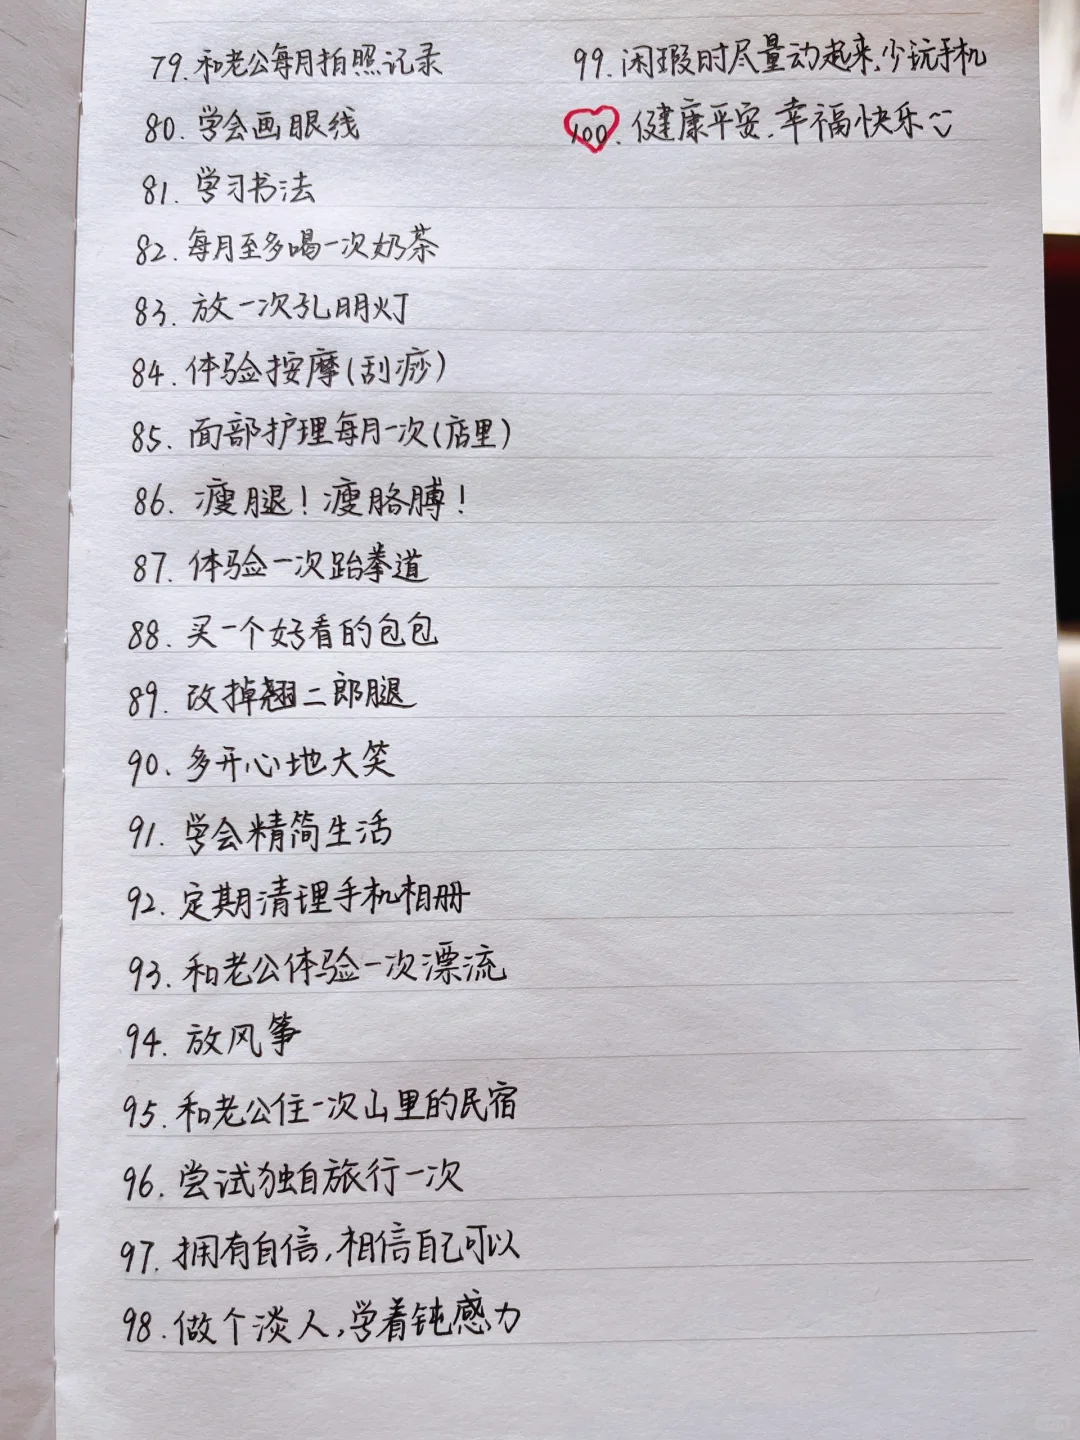 79. 和老公每月拍照记录
80. 学会画眼线
81. 学习书法
82. 每月至多喝一次奶茶
83. 放一次孔明灯
84. 体验按摩(刮痧)
85. 面部护理每月一次(店里)
86. 瘦腿！瘦胳膊！
87. 体验一次跆拳道
88. 买一个好看的包包
89. 改掉翘二郎腿
90. 多开心地大笑
91. 学会精简生活
92. 定期清理手机相册
93. 和老公体验一次漂流
94. 放风筝
95. 和老公住一次山里的民宿
96. 尝试独自旅行一次
97. 拥有自信，相信自己可以
98. 做个淡人，学着钝感力
99. 闲暇时尽量动起来、少玩手机
100. 健康平安、幸福快乐